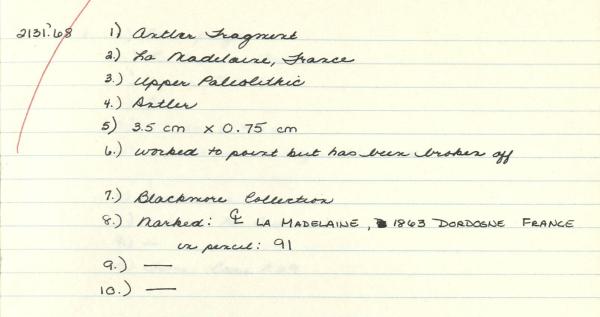 2131.68 1) Antler Fragment
2.) La Madelaine, France
3.) Upper Paleolithic
4.) Antler
5) 3.5 cm x 0.75 cm
6.) worked to point but has been broken off
7.) Blackmore Collection
8.) Marked: LA MADELAINE, 1863 DORDOGNE FRANCE
in pencil: 91
9.) —
10.) —